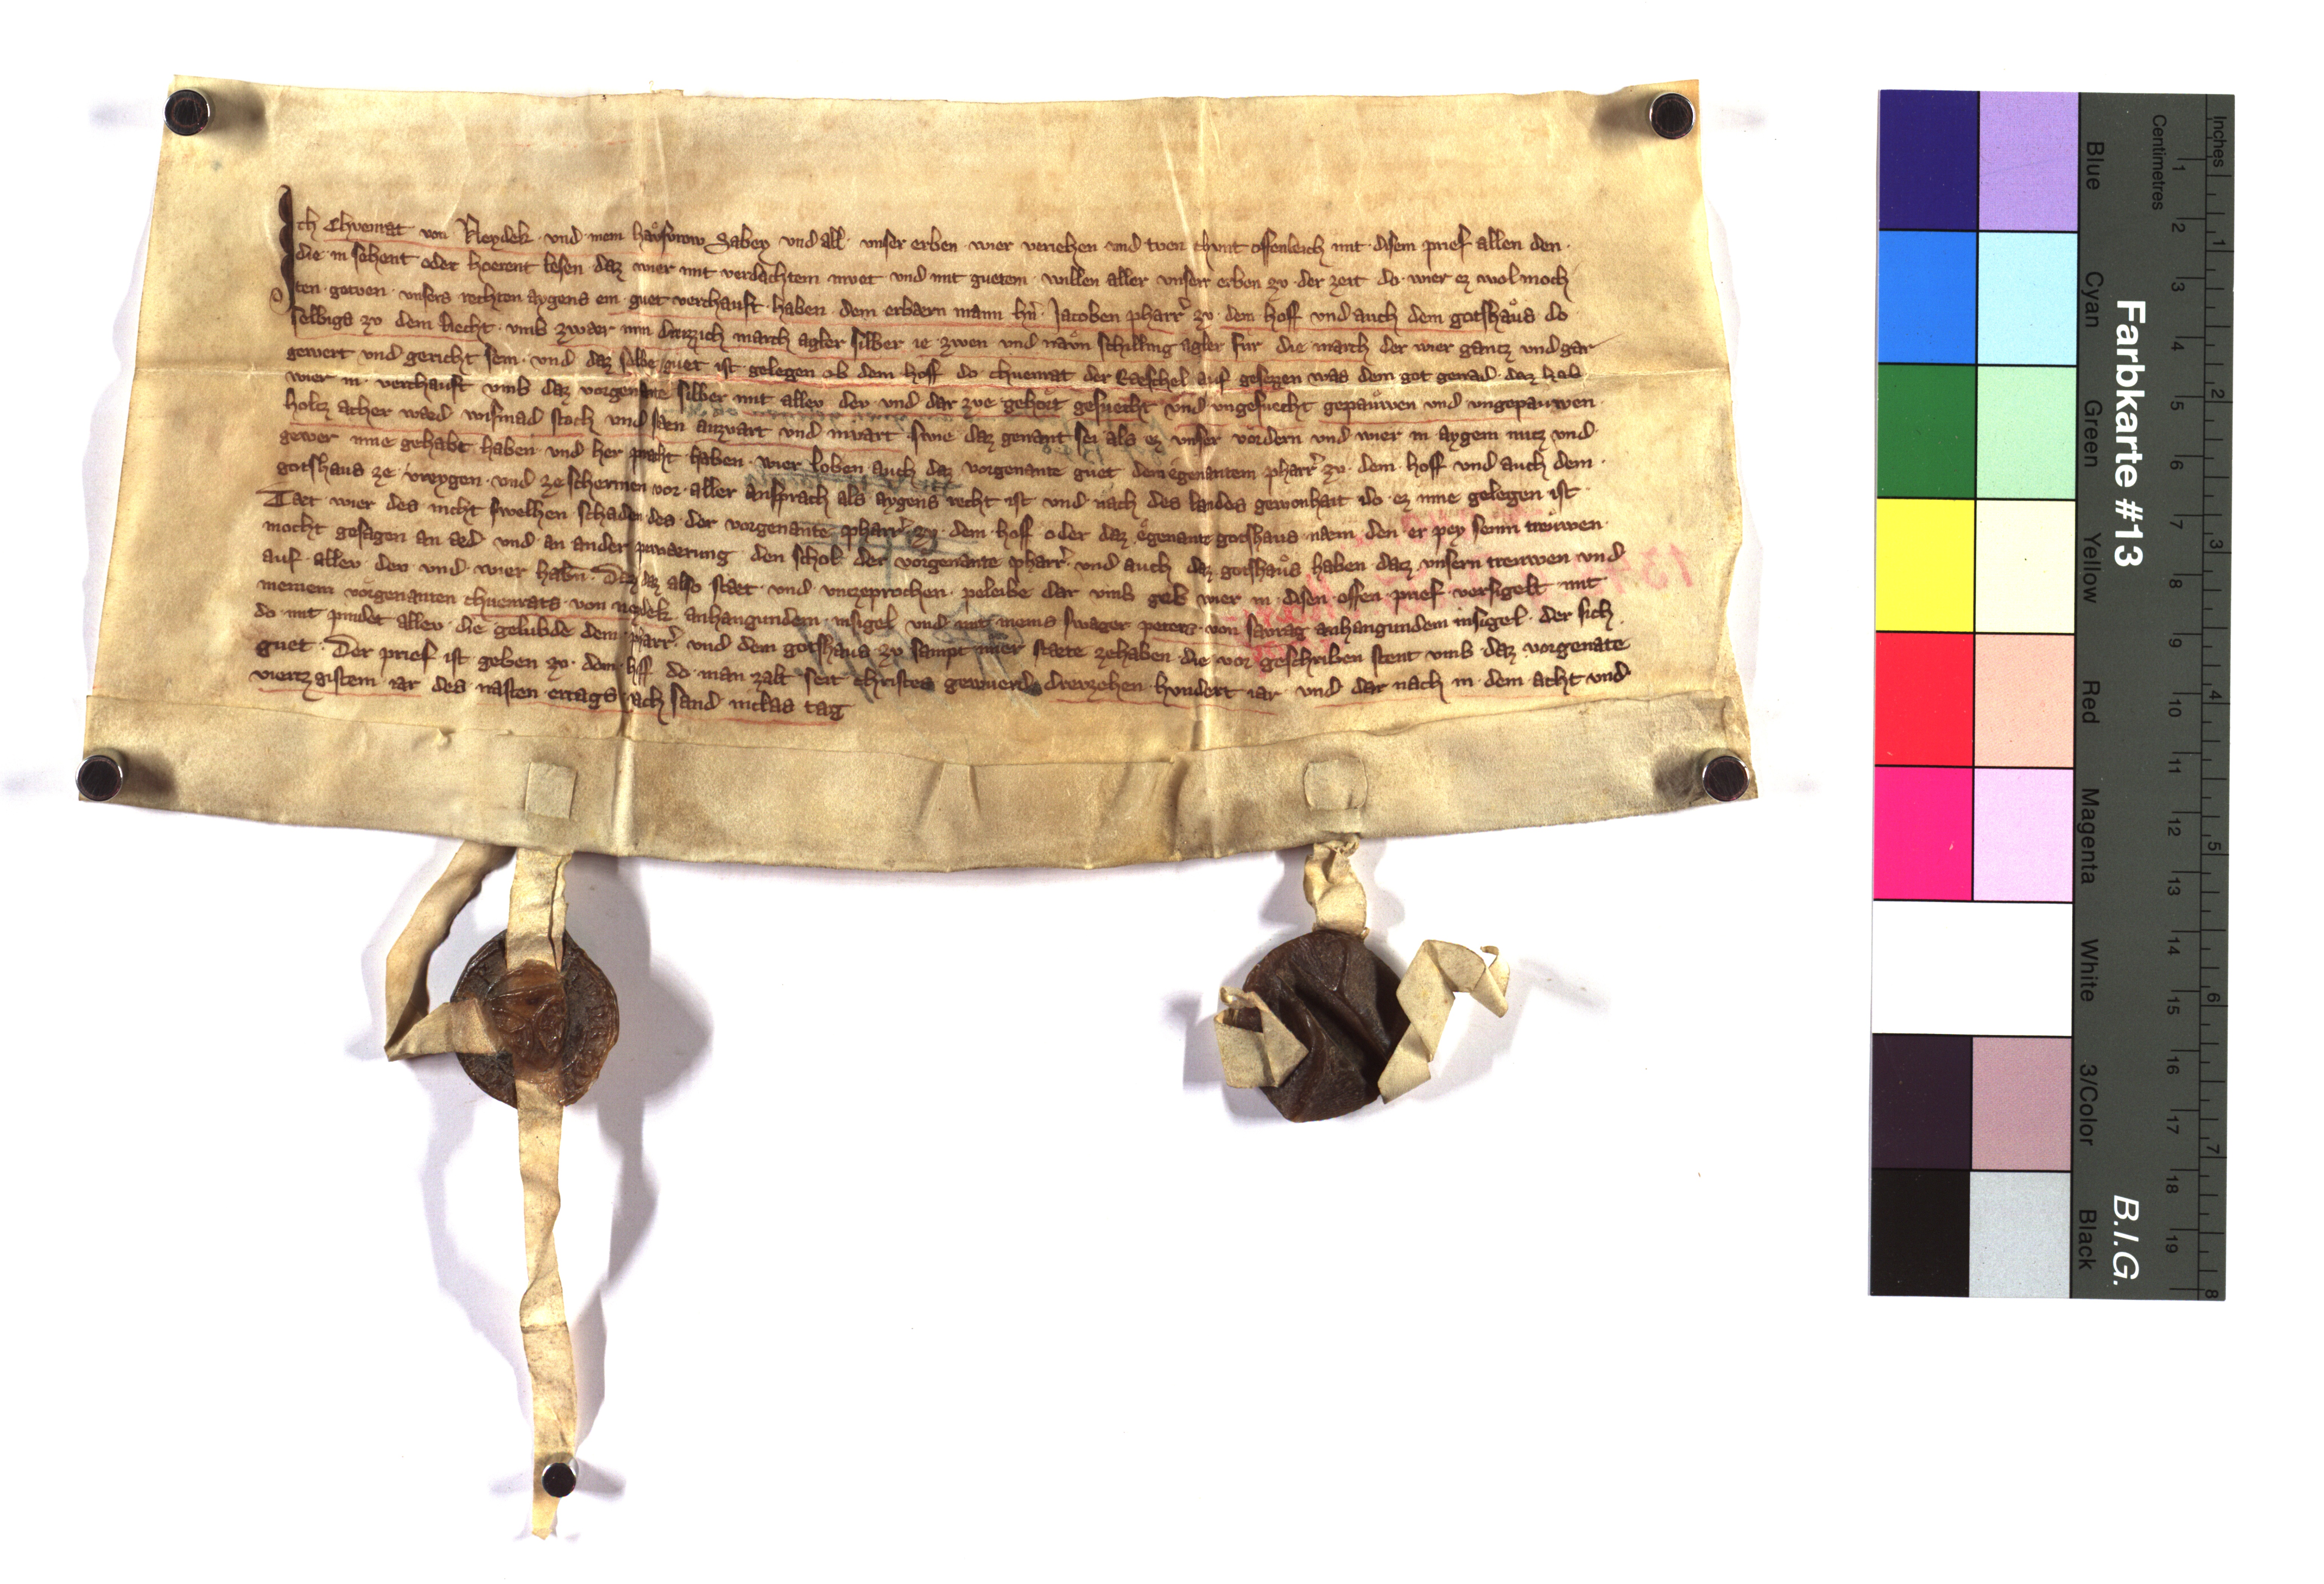 Ich Chvenrat von Neydek · vnd mein havsvrow Sabey vnd all · vnser erben wier veriehen vnd tven chvnt offenleich mit disem prief allen den ·
die in sehent oder hoerent lesen · daz wier mit verdachtem mvet vnd mit guetem · willen aller vnser erben zv der zeit do wier ez wol moch
ten getven · vnsers rechten aygens ein guet verchauft haben dem erbaern mann hn̄ Jacoben pharr̄ zv dem hoff vnd auch dem gotshaus do
selbigs zv dem Recht · vmb zwaer min dreizzich march agler silber ie zwen vnd navn schilling agler fur die march der wier gantz vnd gar
gewert vnd gericht sein · vnd daz selbe guet ist gelegen ob dem hoff do chuenrat der auf gesezzen was dem got genad daz hab
wier in verchauft vmb daz vorgenante silber mit allev dev vnd dar zve gehort gesuecht vnd vngesuecht gepauwen vnd vngepauwen
holtz acher waid wismad stoch vnd stain auzvart vnd invart swie daz genant sei als ez vnser vordern vnd wier in aygem nutz vnd
gewer inne gehabt haben vnd her pracht haben · wier loben auch daz vorgenante guet dem egenantem pharr̄ zv dem hoff vnd auch dem
gotshaus ze vreygen · vnd ze schermen vor aller ansprach als aygens recht ist vnd nach des landes gewonhait do ez inne gelegen ist
Taet wier des nicht swelhen schaden des der vorgenante pharr̄ zv dem hoff oder daz egenante gotshaus naem den er pey seinn trewwen
mocht gesagen an aed vnd an ander pewaerung den schol der vorgenante pharr̄ vnd auch daz gotshaus haben datz vnsern trewwen vnd
auf allev dev vnd wier habn̄ · Daz daz also staet vnd vnzeprochen peleibe dar vmb geb wier in disen offen prief versigelt mit
meinem vorgenanten chuenrats von neydek anhangundem insigel vnd mit meins swager peters von savrag anhangundem insigel der sich
do mit pindet allev die gelubde dem pharr̄ vnd dem gotshaus zv sampt mier staete zehaben die vor geschriben stent vmb daz vorgenate
guet · Der prief ist geben zv dem hoff do man zalt seit christes gewuerd drevzehen hvndert iar vnd dar nach in dem acht vnd
viertzgistem iar des nasten ertags nach sand niclas tag
Farbkarte #13
B.I.G.
Inches
1 2 3 4 5 6 7 8
Centimetres
1 2 3 4 5 6 7 8 9 10 11 12 13 14 15 16 17 18 19
Blue
Cyan
Green
Yellow
Red
Magenta
White
3/Color
Black